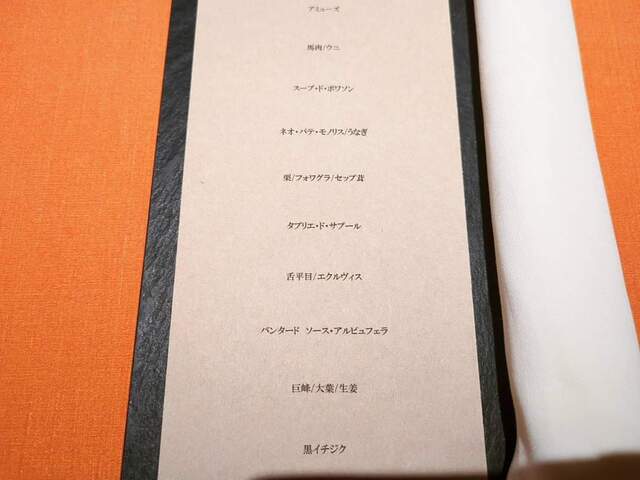 アミューズ
馬肉/ウニ
スープ・ド・ポワソン
ネオ・パテ・モノリス/うなぎ
栗/フォワグラ/セップ茸
タブリエ・ド・サプール
舌平目/エクルヴィス
パンタード ソース・アルビュフェラ
巨峰/大葉/生姜
黒イチジク